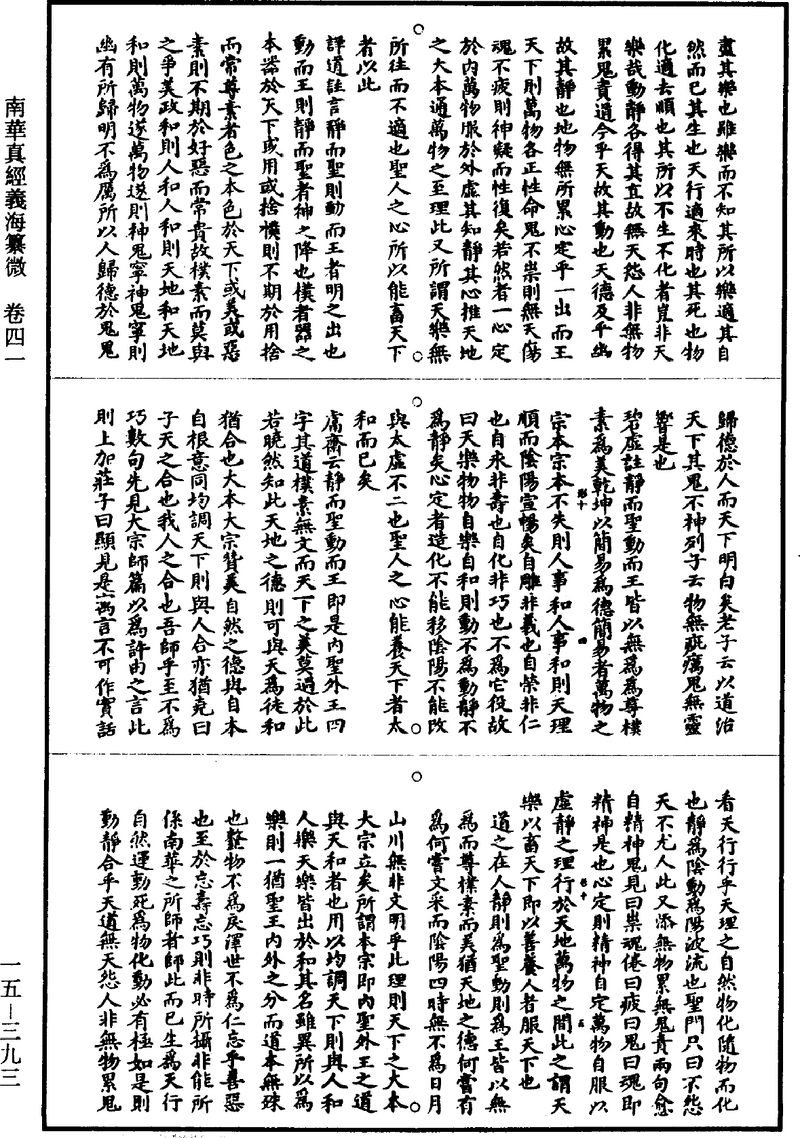 南華真經義海纂微　卷四一
一五—三九三
盡其樂也雖樂而不知其所以樂適其自
然而已其生也天行適來時也其死也物
化適去順也其所以不生不化者豈非天
樂哉動靜各得其宜故無天怨人非無物
累鬼責適今乎天故其動也天德及乎幽
故其靜也地物無所累心定乎一出而王
天下則萬物各正性命鬼不祟則無夭傷
魂不疲則神凝而性復矣若然者一心定
於內萬物服於外虛其知靜其心推天地
之大本通萬物之至理此又所謂天樂無
所往而不適也聖人之心所以能畜天下
者以此
詳道註言靜而聖則動而王者明之出也
動而王則靜而聖者神之降也樸者器之
本器於天下或用或捨樸則不期於用捨
而常尊素者色之本色於天下或美或惡
素則不期於好惡而常貴故樸素而莫與
之爭美政和則人和人和則天地和天地
和則萬物遂萬物遂則神鬼寧神鬼寧則
幽有所歸明不為厲所以人歸德於鬼鬼
歸德於人而天下明白矣老子云以道治
天下其鬼不神列子云物無疵癘鬼無靈
響是也
碧虛註靜而聖動而王皆以無為為尊樸
素為美乾坤以簡易為德簡易者萬物之
宗本宗本不失則人事和人事和則天理
順而陰陽宣暢矣自雕非義也自榮非仁
也自來非壽也自化非巧也不為它役故
曰天樂物物自樂自和則動不為動靜不
為靜矣心定者造化不能移陰陽不能改
與太虛不二也聖人之心能養天下者太
和而已矣
鬳齋云靜而聖動而王即是內聖外王四
字其道樸素無文而天下之美莫過於此
若曉然知此天地之德則可與天為徒和
猶合也大本大宗贊美自然之德與自本
自根意同均調天下則與人合亦猶堯曰
子天之合也我人之合也吾師乎至不為
巧數句先見大宗師篇以為許由之言此
則上加莊子曰顯見是寓言不可作實話
看天行行乎天理之自然物化隨物而化
也靜為陰動為陽波流也聖門只曰不怨
天不尤人此又添無物累無鬼責兩句愈
自精神鬼見曰祟魂倦曰疲曰鬼曰魂即
精神是也心定則精神自定萬物自服以
虛靜之理行於天地萬物之間此之謂天
樂以畜天下即以善養人者服天下也
道之在人靜則為聖動則為王皆以無
為而尊樸素而美猶天地之德何嘗有
為何嘗文采而陰陽四時無不為日月
山川無非文明乎此理則天下之大本
大宗立矣所謂本宗即內聖外王之道
與天和者也用以均調天下則與人和
人樂天樂皆出於和其名雖異所以為
樂則一猶聖王內外之分而道本無殊
也𩐎物不為戾澤世不為仁忘乎善惡
也至於忘壽忘巧則非時所攝非能所
係南華之所師者師此而已生為天行
自然運動死為物化動必有極如是則
動靜合乎天道無天怨人非無物累鬼